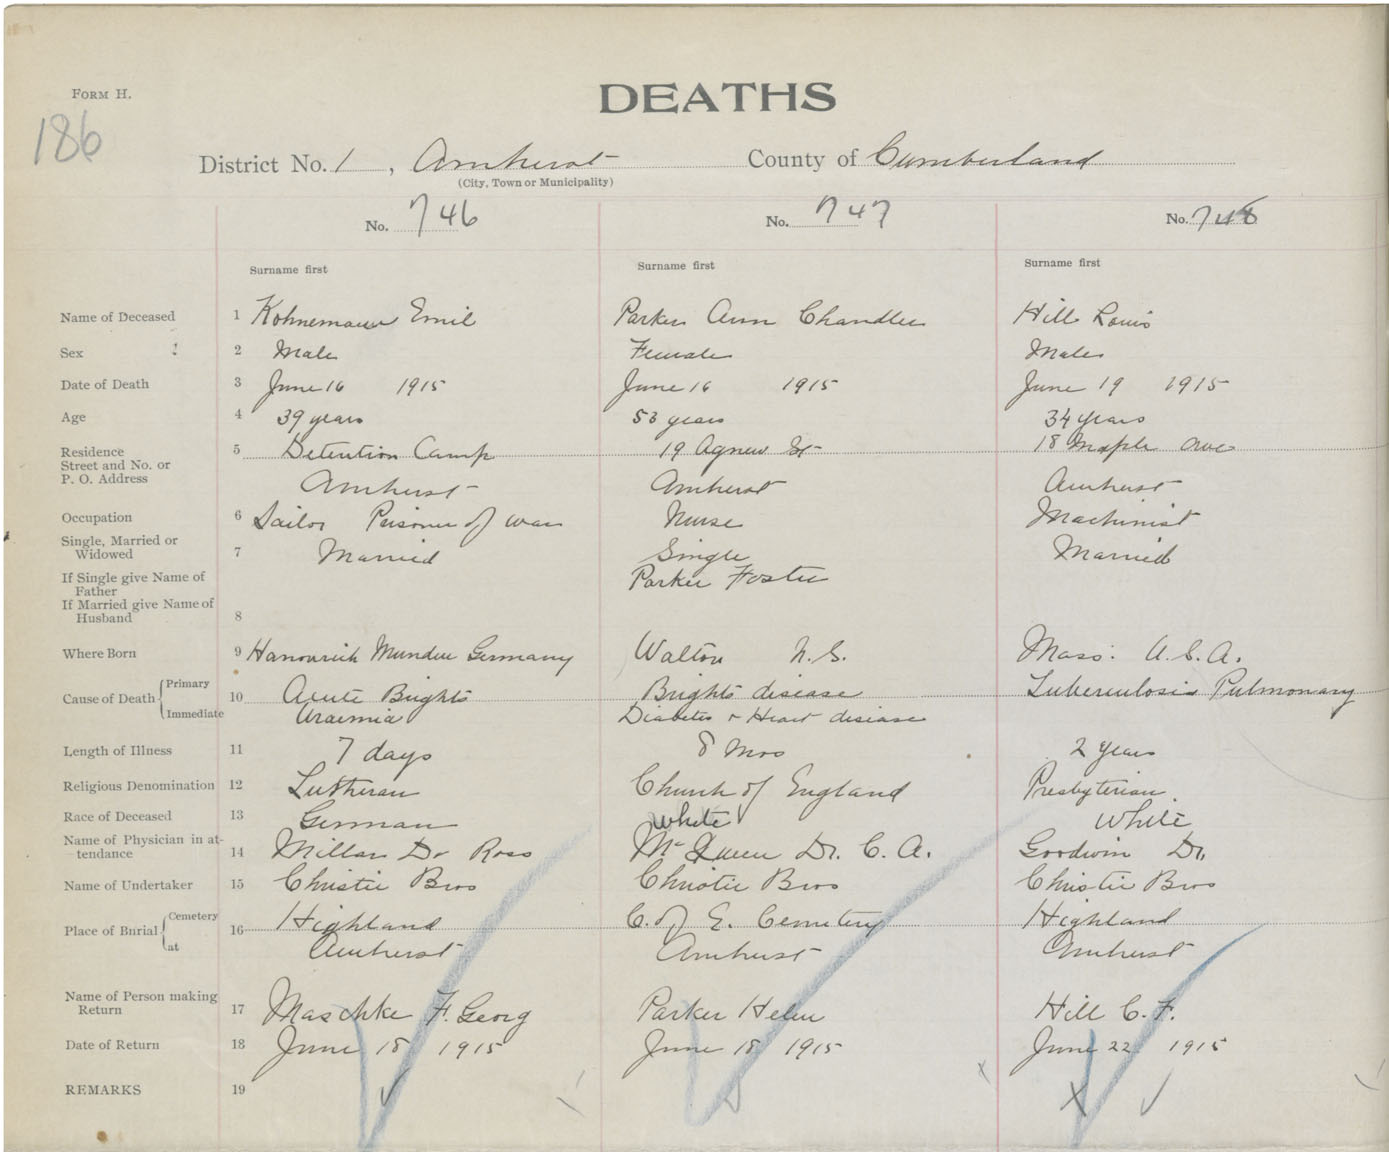 FORM H.
DEATHS
186
District No. 1, Amherst County of Cumberland
(City, Town or Municipality)
No. 746 No. 747 No. 748
Surname first Surname first Surname first
Name of Deceased 1 Kohnemann Emil Parker Ann Chandler Hill Louis
Sex 2 Male Female Male
Date of Death 3 June 16 1915 June 16 1915 June 19 1915
Age 4 39 years 53 years 34 years
Residence 5 Detention Camp 19 Agnew St 18 Maple Ave
Street and No. or
P. O. Address Amherst Amherst Amherst
Occupation 6 Sailor Prisoner of war Nurse Machinist
Single, Married or
Widowed 7 Married Single Married
If Single give Name of
Father Parker Foster
If Married give Name of
Husband 8
Where Born 9 Munden Germany Walton N.S. Mass. U.S.A.
Cause of Death Primary 10 Acute Brights Brights disease Tuberculosis Pulmonary
Immediate Uraemia Diabetes + Heart disease
Length of Illness 11 7 days 8 Mos 2 years
Religious Denomination 12 Lutheran Church of England Presbyterian
Race of Deceased 13 German White White
Name of Physician in at-
tendance 14 Millar Dr Ross McQueen Dr. C. A. Goodwin Dr.
Name of Undertaker 15 Christie Bros Christie Bros Christie Bros
Place of Burial Cemetery 16 Highland C. of E. Cemetery Highland
at Amherst Amherst Amherst
Name of Person making
Return 17 Maschke F. Georg Parker Helen Hill C. F.
Date of Return 18 June 18 1915 June 18 1915 June 22 1915
REMARKS 19